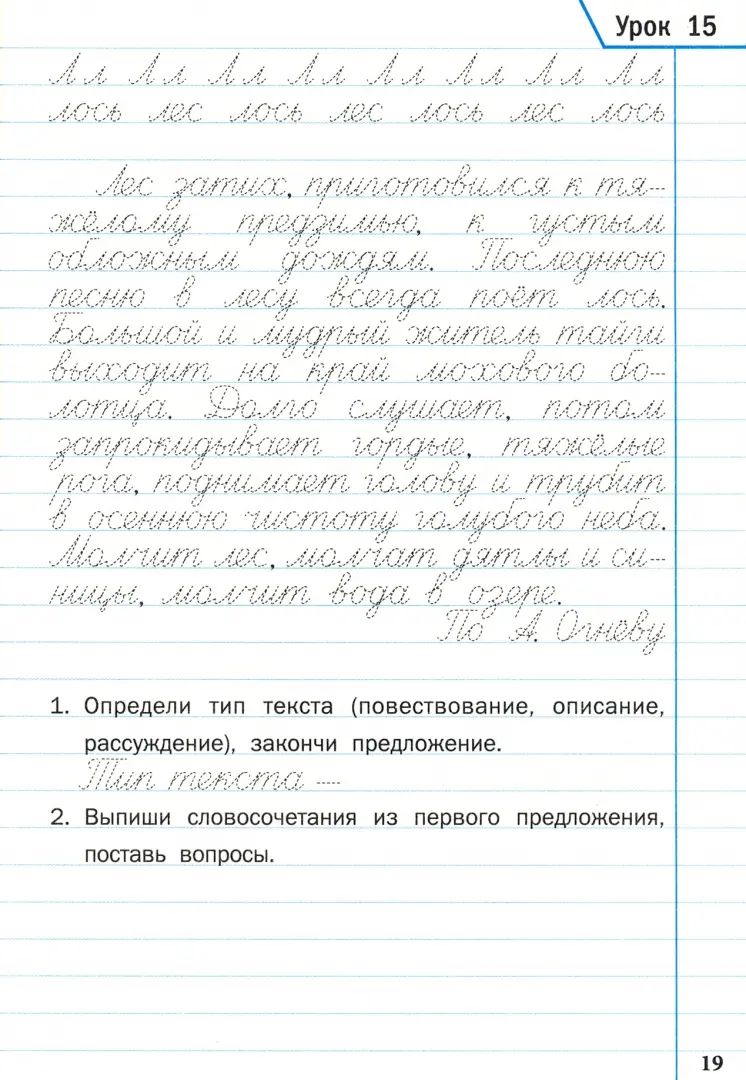 Урок 15
Лл Лл Лл Лл Лл Лл Лл Лл
лось лес лось лес лось лес лось
Лес затих, приготовился к тя-
жёлому предзимью, к густым
обложным дождям. Последнюю
песню в лесу всегда поёт лось.
Большой и мудрый житель тайги
выходит на край мохового бо-
лотца. Долго слушает, потом
запрокидывает гордые, тяжёлые
рога, поднимает голову и трубит
в осеннюю чистоту голубого неба.
Молчит лес, молчат дятлы и си-
ницы, молчит вода в озере.
По А. Огнёву
1. Определи тип текста (повествование, описание,
рассуждение), закончи предложение.
Тип текста —
2. Выпиши словосочетания из первого предложения,
поставь вопросы.
19